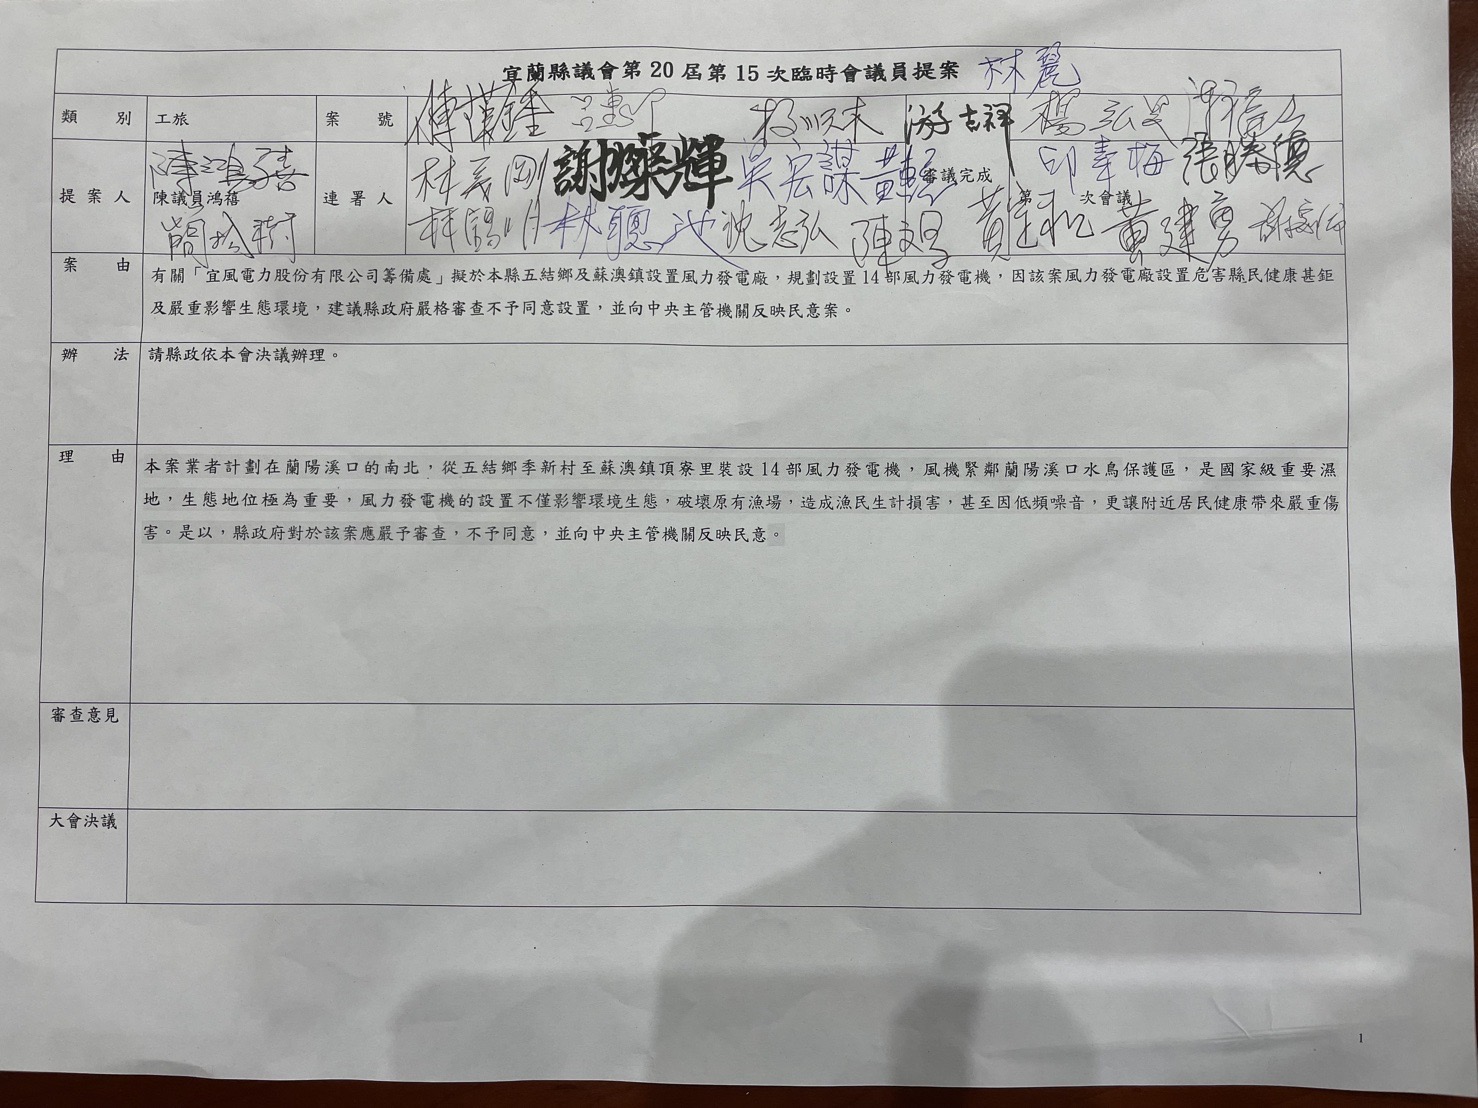 宜蘭縣議會第20屆第15次臨時會議員提案 林麗
類別 工旅 案號 游吉祥
提案人 陳議員鴻禧 連署人 審議完成
第 次會議
林義剛 謝燦輝 吳宏謀 邱素梅 張勝德
林聰池 沈志弘 黃建勇
案由 有關「宜風電力股份有限公司籌備處」擬於本縣五結鄉及蘇澳鎮設置風力發電廠，規劃設置14部風力發電機，因該案風力發電廠設置危害縣民健康甚鉅
及嚴重影響生態環境，建議縣政府嚴格審查不予同意設置，並向中央主管機關反映民意案。
辦法 請縣政依本會決議辦理。
理由 本案業者計劃在蘭陽溪口的南北，從五結鄉季新村至蘇澳鎮頂寮里裝設14部風力發電機，風機緊鄰蘭陽溪口水鳥保護區，是國家級重要濕
地，生態地位極為重要，風力發電機的設置不僅影響環境生態，破壞原有漁場，造成漁民生計損害，甚至因低頻噪音，更讓附近居民健康帶來嚴重傷
害。是以，縣政府對於該案應嚴予審查，不予同意，並向中央主管機關反映民意。
審查意見
大會決議
1